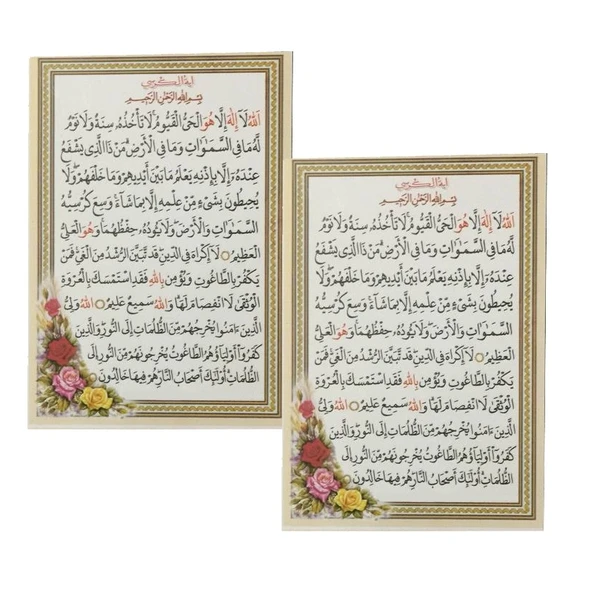 اية الكرسي
بِسْمِ اللهِ الرَّحْمٰنِ الرَّحِيمِ
اَللهُ لَآ إِلٰهَ إِلَّا هُوَ الْحَيُّ الْقَيُّومُ لَا تَأْخُذُهُ سِنَةٌ وَلَا نَوْمٌ
لَّهُ مَا فِي السَّمٰوَاتِ وَمَا فِي الْأَرْضِ مَنْ ذَا الَّذِي يَشْفَعُ
عِنْدَهُ إِلَّا بِإِذْنِهِ يَعْلَمُ مَا بَيْنَ أَيْدِيهِمْ وَمَا خَلْفَهُمْ وَلَا
يُحِيطُونَ بِشَيْءٍ مِنْ عِلْمِهِ إِلَّا بِمَا شَاءَ وَسِعَ كُرْسِيُّهُ
السَّمٰوَاتِ وَالْأَرْضَ وَلَا يَئُودُهُ حِفْظُهُمَا وَهُوَ الْعَلِيُّ
الْعَظِيمُ ۝ لَا إِكْرَاهَ فِي الدِّينِ قَدْ تَبَيَّنَ الرُّشْدُ مِنَ الْغَيِّ فَمَنْ
يَكْفُرْ بِالطَّاغُوتِ وَيُؤْمِنْ بِاللهِ فَقَدِ اسْتَمْسَكَ بِالْعُرْوَةِ
الْوُثْقَى لَا انْفِصَامَ لَهَا وَاللهُ سَمِيعٌ عَلِيمٌ ۝ اَللهُ وَلِيُّ
الَّذِينَ ءَامَنُوا يُخْرِجُهُمْ مِنَ الظُّلُمَاتِ إِلَى النُّورِ وَالَّذِينَ
كَفَرُوا أَوْلِيَاؤُهُمُ الطَّاغُوتُ يُخْرِجُونَهُمْ مِنَ النُّورِ إِلَى
الظُّلُمَاتِ أُولَٰئِكَ أَصْحَابُ النَّارِ هُمْ فِيهَا خَالِدُونَ
اية الكرسي
بِسْمِ اللهِ الرَّحْمٰنِ الرَّحِيمِ
اَللهُ لَآ إِلٰهَ إِلَّا هُوَ الْحَيُّ الْقَيُّومُ لَا تَأْخُذُهُ سِنَةٌ وَلَا نَوْمٌ
لَّهُ مَا فِي السَّمٰوَاتِ وَمَا فِي الْأَرْضِ مَنْ ذَا الَّذِي يَشْفَعُ
عِنْدَهُ إِلَّا بِإِذْنِهِ يَعْلَمُ مَا بَيْنَ أَيْدِيهِمْ وَمَا خَلْفَهُمْ وَلَا
يُحِيطُونَ بِشَيْءٍ مِنْ عِلْمِهِ إِلَّا بِمَا شَاءَ وَسِعَ كُرْسِيُّهُ
السَّمٰوَاتِ وَالْأَرْضَ وَلَا يَئُودُهُ حِفْظُهُمَا وَهُوَ الْعَلِيُّ
الْعَظِيمُ ۝ لَا إِكْرَاهَ فِي الدِّينِ قَدْ تَبَيَّنَ الرُّشْدُ مِنَ الْغَيِّ فَمَنْ
يَكْفُرْ بِالطَّاغُوتِ وَيُؤْمِنْ بِاللهِ فَقَدِ اسْتَمْسَكَ بِالْعُرْوَةِ
الْوُثْقَى لَا انْفِصَامَ لَهَا وَاللهُ سَمِيعٌ عَلِيمٌ ۝ اَللهُ وَلِيُّ
الَّذِينَ ءَامَنُوا يُخْرِجُهُمْ مِنَ الظُّلُمَاتِ إِلَى النُّورِ وَالَّذِينَ
كَفَرُوا أَوْلِيَاؤُهُمُ الطَّاغُوتُ يُخْرِجُونَهُمْ مِنَ النُّورِ إِلَى
الظُّلُمَاتِ أُولَٰئِكَ أَصْحَابُ النَّارِ هُمْ فِيهَا خَالِدُونَ ۝